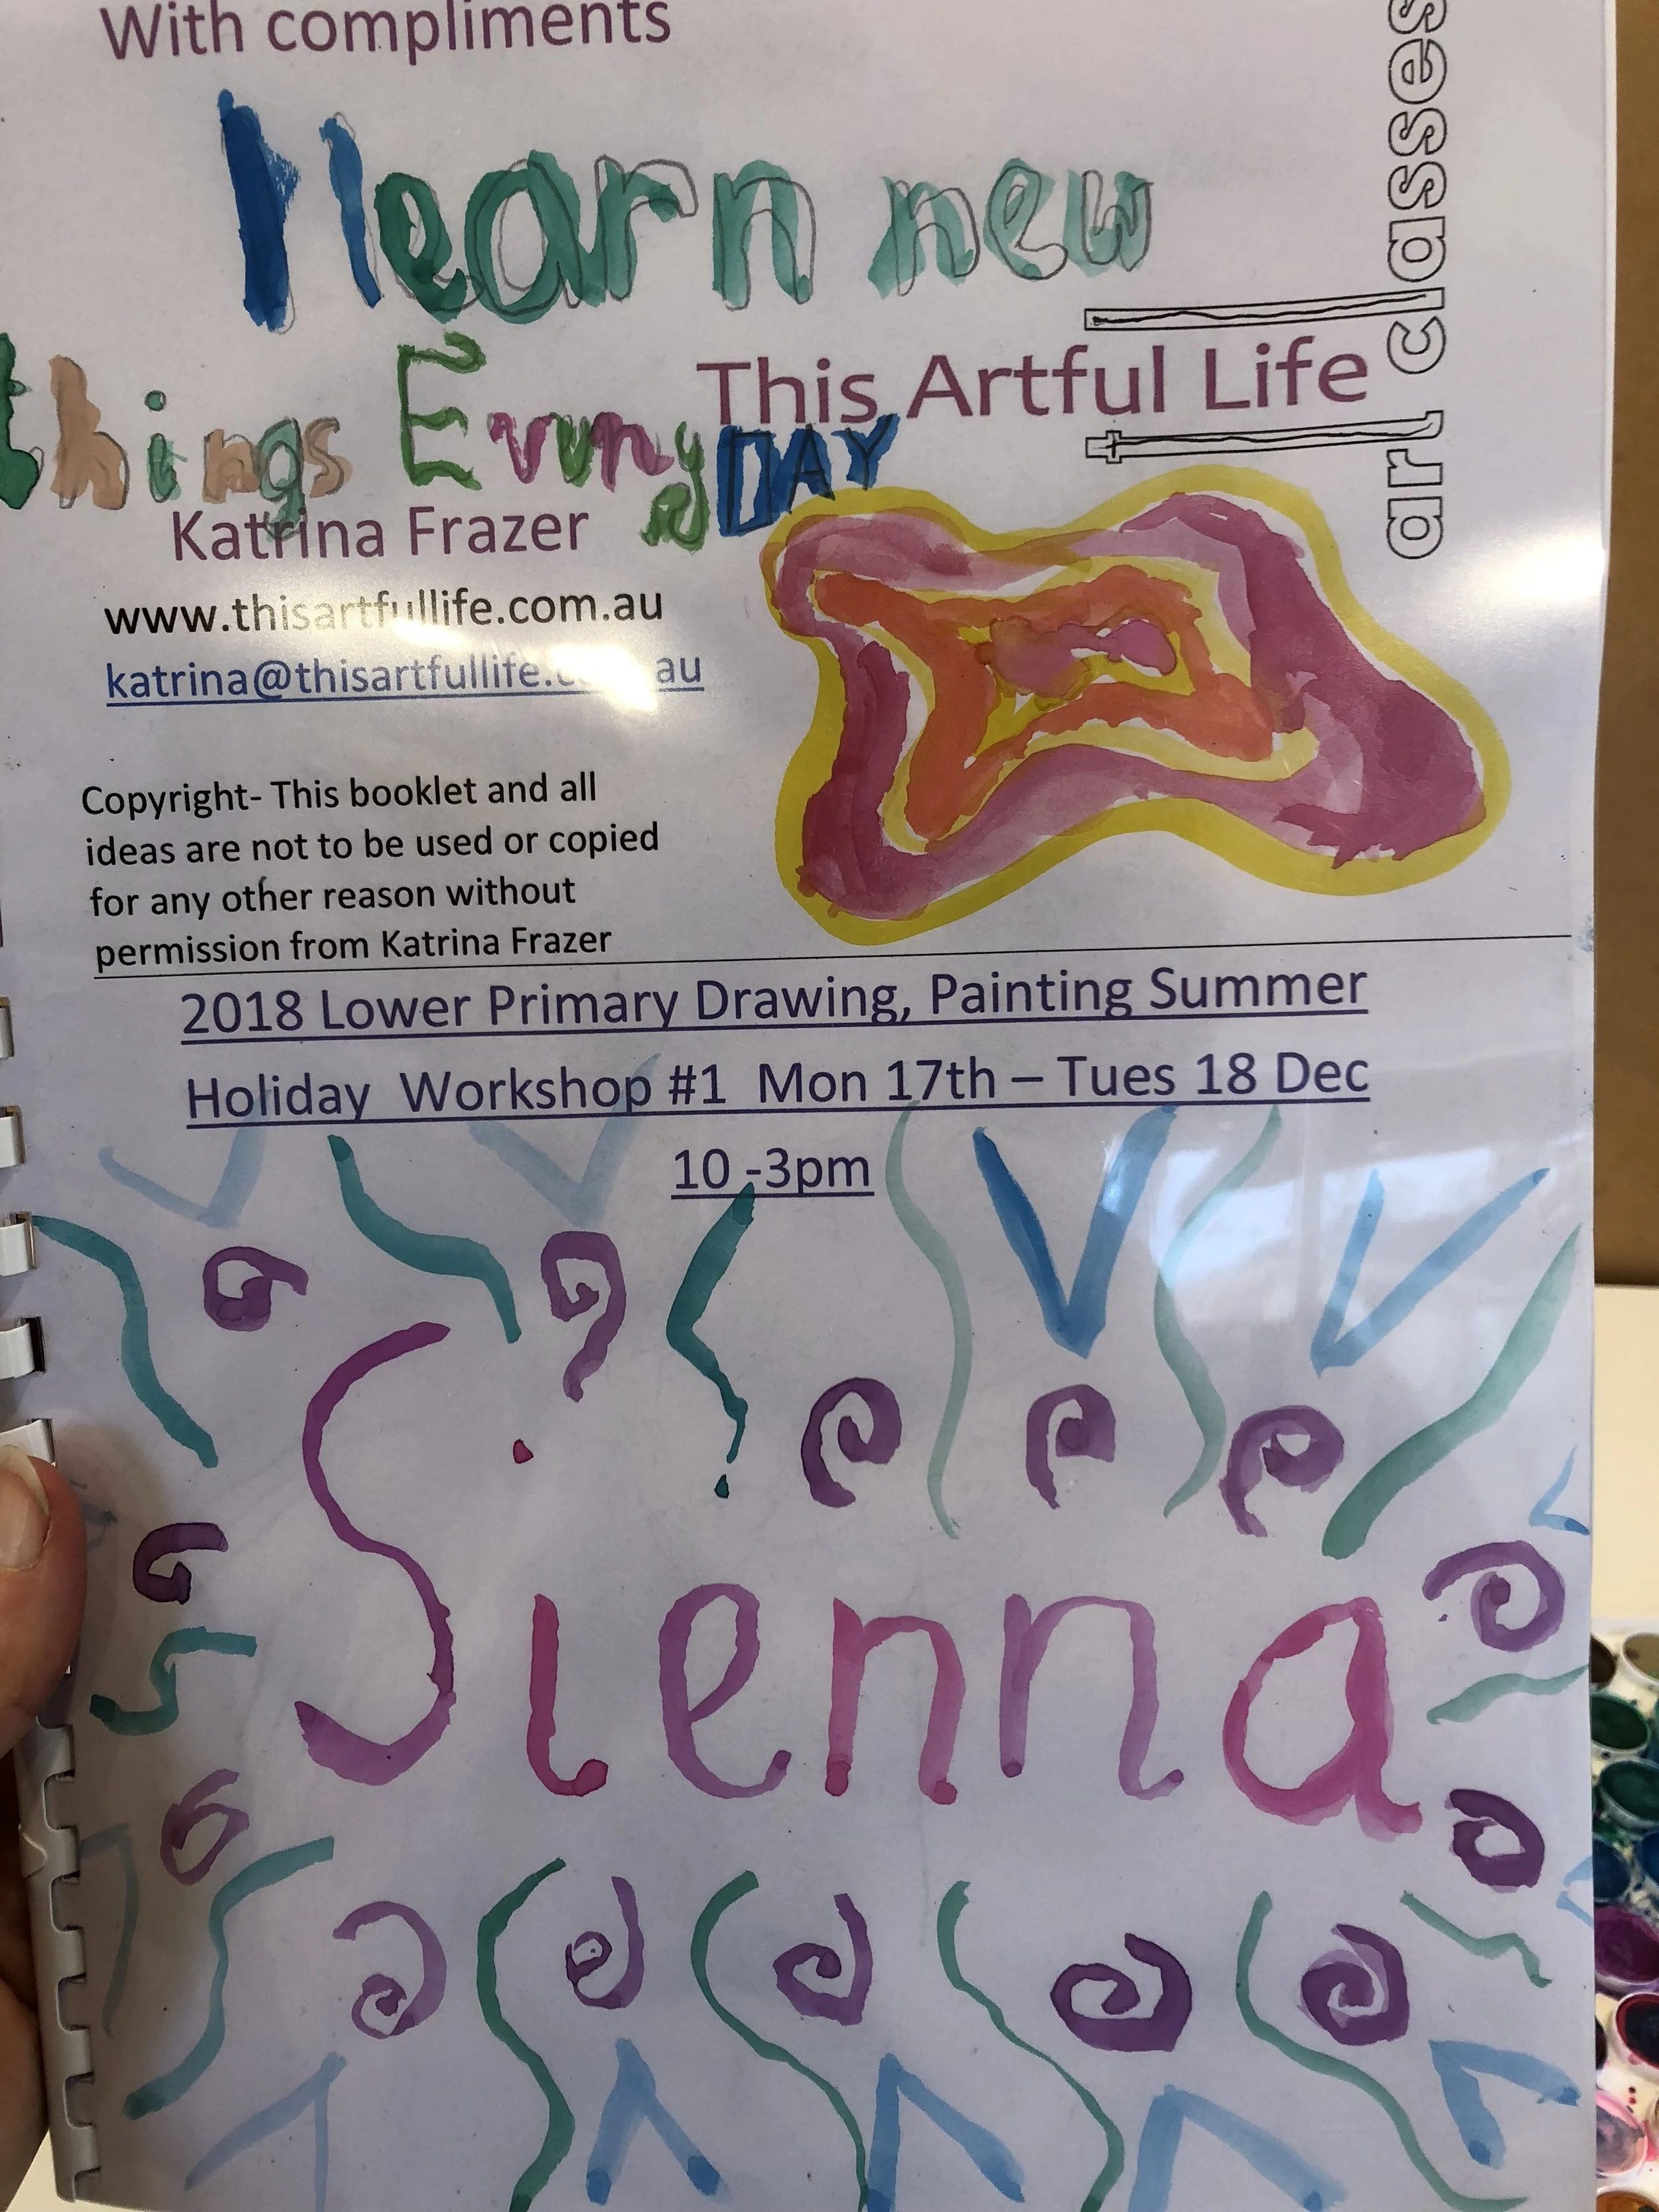 With compliments
I learn new
things Evrny DAY
This Artful Life
art classes
Katrina Frazer
www.thisartfullife.com.au
katrina@thisartfullife. au
Copyright- This booklet and all
ideas are not to be used or copied
for any other reason without
permission from Katrina Frazer
2018 Lower Primary Drawing, Painting Summer
Holiday Workshop #1 Mon 17th – Tues 18 Dec
10 -3pm
Sienna